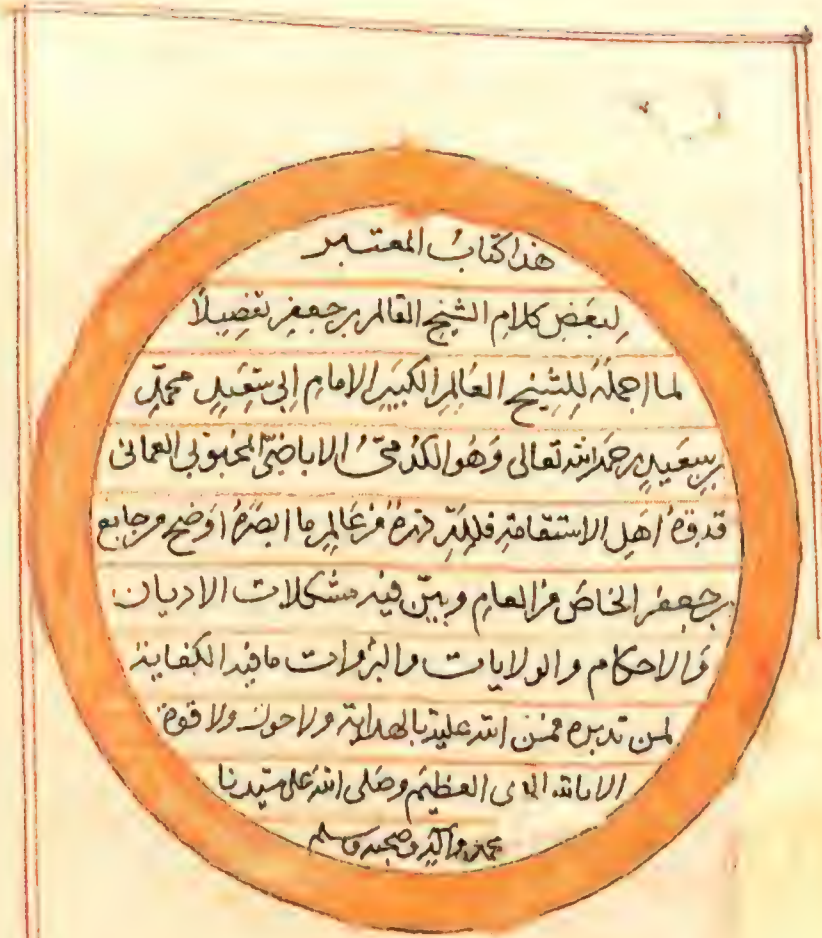 هذا كتابُ المعتبر
لبعَضِ كلامِ الشيخِ العالم بن جعفر تفضِيلاً
لما اجملَهُ لِلشيخ العَالِمِ الكبيَرِ الامامِ اِبى سَعَيدٍ محمّدِ
بن سَعَيدٍ رحمَهُ الله تعالى وَهُو الكُدمىُّ الاباضىّ المحبَوبى العمانى
قدوةُ اهَلِ الاستقامَةِ فللهِ درهُ مِن عَالمٍ ما ابصَرَهُ اوَضح من جامع
بن جعفر الخاصَ من العامِ وبيّن فيه مشكلات الاديان
وَالاحكام والولايات والبرَوات ما فيه الكفاية
لمن تدبره فمنّ الله عليهَ بالهداية ولا حول ولا قوة
الا بالله العلى العظيم وصَلى الله على سَيدنا
محمد وآله وصحبه وسلم